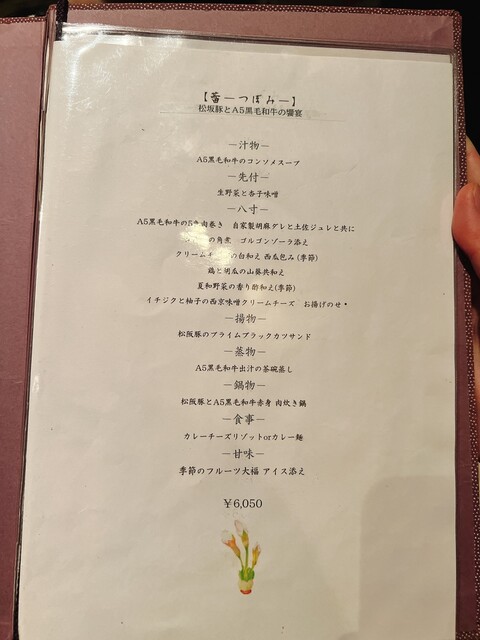 【蕾―つぼみ―】
松坂豚とA5黒毛和牛の饗宴
―汁物―
A5黒毛和牛のコンソメスープ
―先付―
生野菜と杏子味噌
―八寸―
A5黒毛和牛の 肉巻き 自家製胡麻ダレと土佐ジュレと共に
の角煮 ゴルゴンゾーラ添え
クリームチ の白和え 西瓜包み(季節)
鶏と胡瓜の山葵共和え
夏和野菜の香り酢和え(季節)
イチジクと柚子の西京味噌クリームチーズ お揚げのせ・
―揚物―
松阪豚のプライムブラックカツサンド
―蒸物―
A5黒毛和牛出汁の茶碗蒸し
―鍋物―
松阪豚とA5黒毛和牛赤身 肉炊き鍋
―食事―
カレーチーズリゾットorカレー麺
―甘味―
季節のフルーツ大福 アイス添え
￥6,050